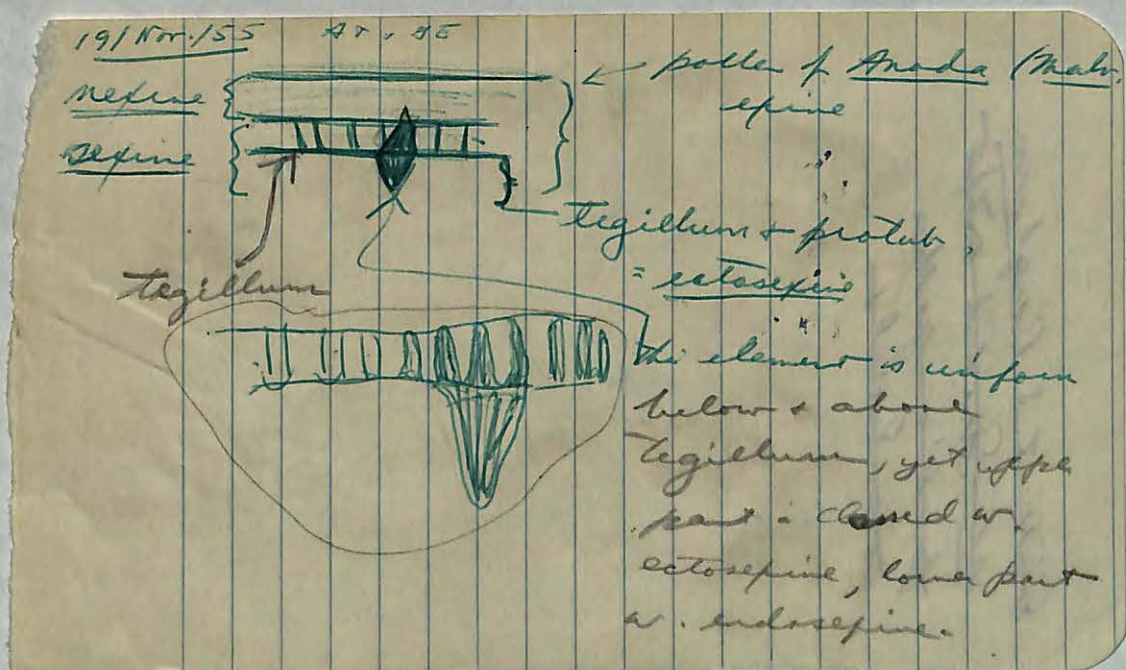 19/Nov./55
nexine
sexine
← pollen of Anoda (Malv.
exine
tegillum + protub.
= ectosexine
tegillum
this element is uniform
below + above
tegillum, yet upper
part is classed w.
ectosexine, lower part
w. endosexine.